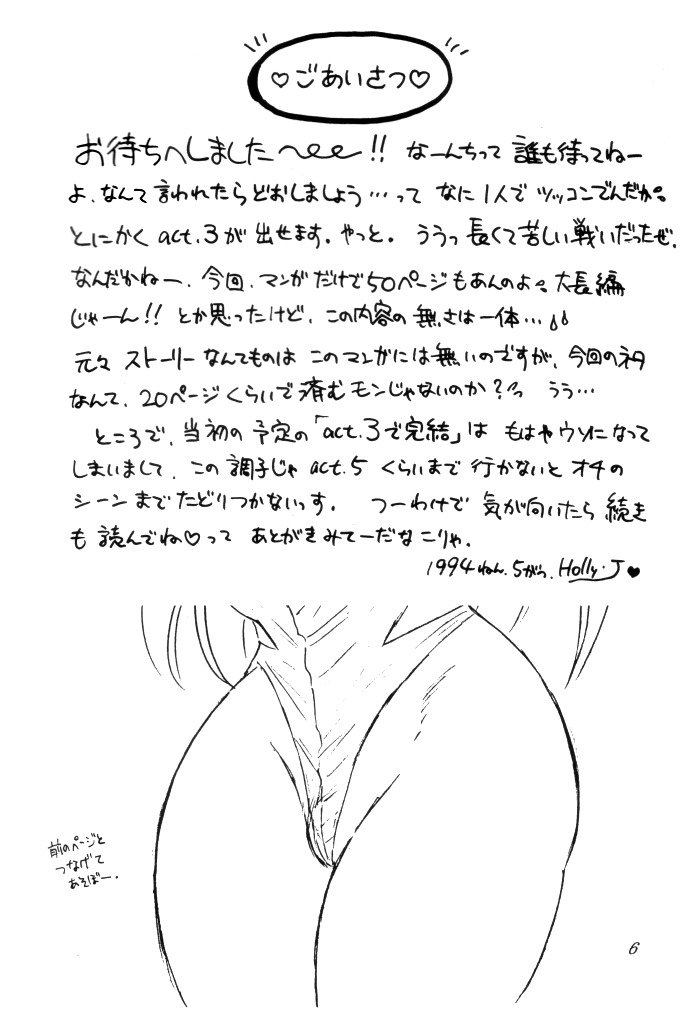 ♡ごあいさつ♡
お待ちへしました〜!! なーんちって 誰も待ってねー
よ、なんて言われたらどおしましょう…って なに1人で ツッコンでんだか。
とにかく act.3が 出せます。やっと。 ううっ 長くて苦しい戦いだったぜ.
なんだかねー、今回、マンガだけで50ページもあんのよ。大長編
じゃーん!! とか思ったけど、この内容の 無さは一体…
元々 ストーリーなんてものは このマンガには無いのですが、今回のネタ
なんて、20ページくらいで済むモンじゃないのか?っ うう…
ところで、当初の予定の「act.3で完結」は もはやウソになって
しまいまして、この調子じゃ act.5 くらいまで 行かないと オチの
シーンまでたどりつかないっす。 つーわけで 気が向いたら 続き
も 読んでね♡って あとがきみてーだな こりゃ.
1994ねん.5がつ. Holly・J♥
前のページと
つなげて
あそぼー.
6